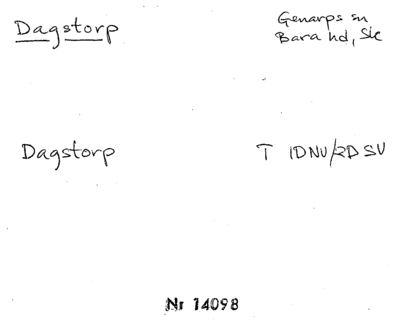 Dagstorp
Genarps sn
Bara hd, Sk
Dagstorp
T 1DNV/2DSV
Nr 14098